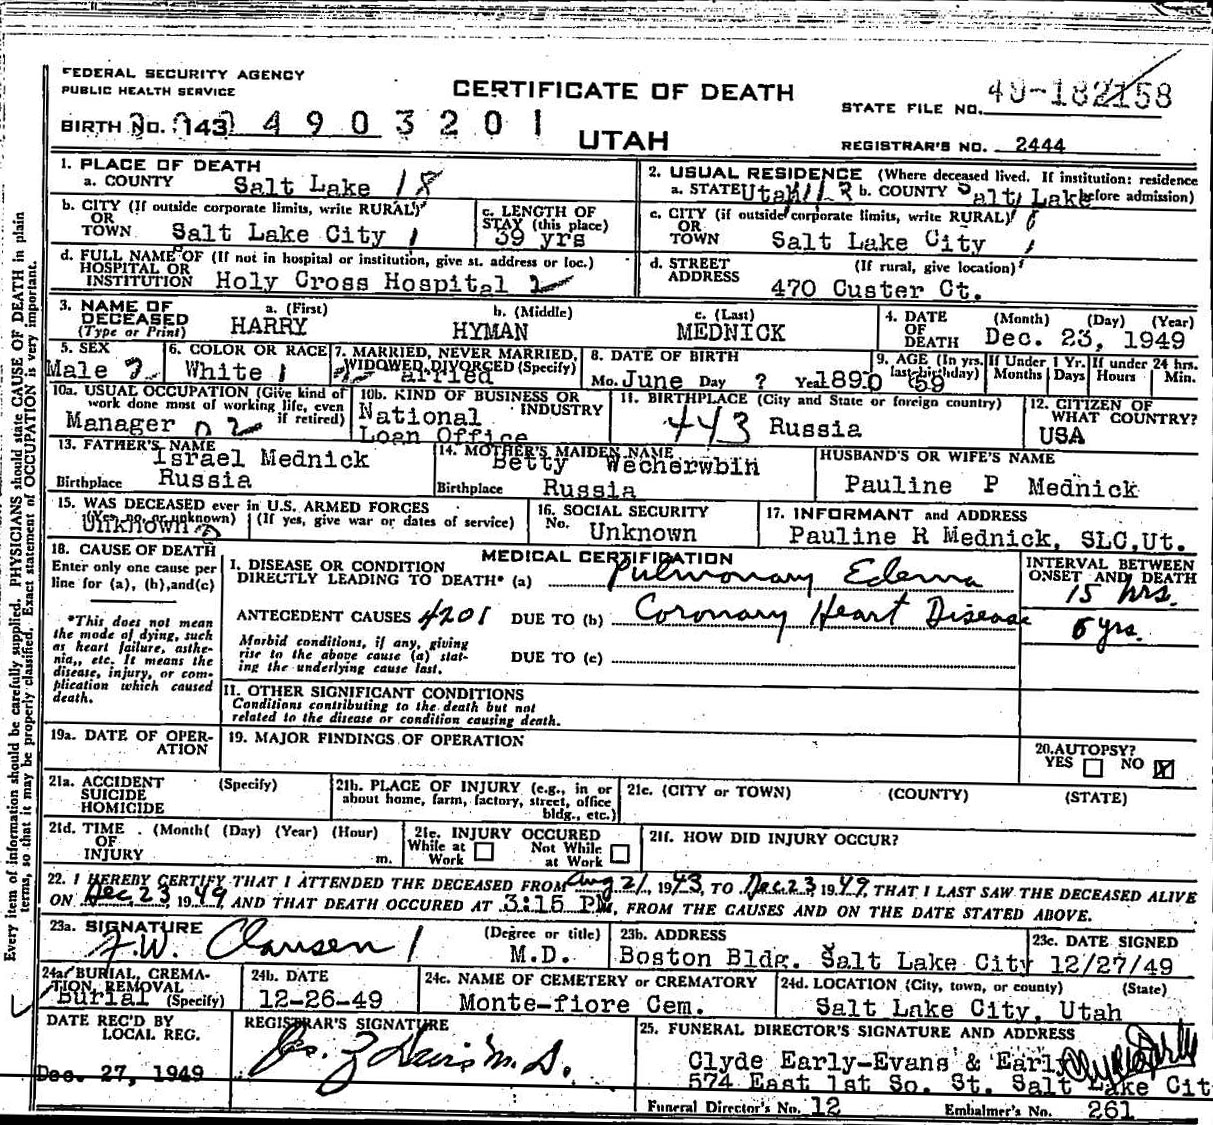 FEDERAL SECURITY AGENCY
PUBLIC HEALTH SERVICE
CERTIFICATE OF DEATH
STATE FILE NO. 49-182158
BIRTH No. 143 4903201
UTAH
REGISTRAR'S NO. 2444
1. PLACE OF DEATH
a. COUNTY Salt Lake 18
2. USUAL RESIDENCE (Where deceased lived. If institution: residence before admission)
a. STATE Utah b. COUNTY Salt Lake
b. CITY (If outside corporate limits, write RURAL)
OR
TOWN Salt Lake City 1
c. LENGTH OF
STAY (this place)
39 yrs
c. CITY (if outside corporate limits, write RURAL)
OR
TOWN Salt Lake City 1
d. FULL NAME OF (If not in hospital or institution, give st. address or loc.)
HOSPITAL OR
INSTITUTION Holy Cross Hospital 2
d. STREET (If rural, give location)
ADDRESS
470 Custer Ct.
3. NAME OF
DECEASED
(Type or Print)
a. (First) b. (Middle) c. (Last)
HARRY HYMAN MEDNICK
4. DATE
OF
DEATH
(Month) (Day) (Year)
Dec. 23, 1949
5. SEX
Male 2
6. COLOR OR RACE
White 1
7. MARRIED, NEVER MARRIED,
WIDOWED, DIVORCED (Specify)
arried
8. DATE OF BIRTH
Mo. June Day ? Year 1890
9. AGE (In yrs.
last birthday)
59
If Under 1 Yr.
Months Days
If under 24 hrs.
Hours Min.
10a. USUAL OCCUPATION (Give kind of
work done most of working life, even
if retired)
Manager
10b. KIND OF BUSINESS OR
INDUSTRY
National
Loan Office
11. BIRTHPLACE (City and State or foreign country)
443 Russia
12. CITIZEN OF
WHAT COUNTRY?
USA
13. FATHER'S NAME
Israel Mednick
Birthplace Russia
14. MOTHER'S MAIDEN NAME
Betty Wecherwbin
Birthplace Russia
HUSBAND'S OR WIFE'S NAME
Pauline P Mednick
15. WAS DECEASED ever in U.S. ARMED FORCES
(Yes, no, or unknown) (If yes, give war or dates of service)
Unknown
16. SOCIAL SECURITY
No. Unknown
17. INFORMANT and ADDRESS
Pauline R Mednick, SLC,Ut.
18. CAUSE OF DEATH
Enter only one cause per
line for (a), (b),and(c)
*This does not mean
the mode of dying, such
as heart failure, asthe-
nia,, etc. It means the
disease, injury, or com-
plication which caused
death.
MEDICAL CERTIFICATION
I. DISEASE OR CONDITION
DIRECTLY LEADING TO DEATH* (a) Pulmonary Edema
ANTECEDENT CAUSES 4201 DUE TO (b) Coronary Heart Disease
Morbid conditions, if any, giving
rise to the above cause (a) stat-
ing the underlying cause last.
DUE TO (c)
INTERVAL BETWEEN
ONSET AND DEATH
15 hrs.
6 yrs.
II. OTHER SIGNIFICANT CONDITIONS
Conditions contributing to the death but not
related to the disease or condition causing death.
19a. DATE OF OPER-
ATION
19. MAJOR FINDINGS OF OPERATION
20.AUTOPSY?
YES NO
21a. ACCIDENT (Specify)
SUICIDE
HOMICIDE
21b. PLACE OF INJURY (e.g., in or
about home, farm, factory, street, office
bldg., etc.)
21c. (CITY or TOWN) (COUNTY) (STATE)
21d. TIME (Month( (Day) (Year) (Hour)
OF
INJURY m.
21e. INJURY OCCURED
While at Work Not While at Work
21f. HOW DID INJURY OCCUR?
22. I HEREBY CERTIFY THAT I ATTENDED THE DECEASED FROM Aug 21, 1943, TO Dec. 23 1949, THAT I LAST SAW THE DECEASED ALIVE
ON Dec 23 1949 AND THAT DEATH OCCURED AT 3:15 PM, FROM THE CAUSES AND ON THE DATE STATED ABOVE.
23a. SIGNATURE (Degree or title)
F.W. Clausen M.D.
23b. ADDRESS
Boston Bldg. Salt Lake City
23c. DATE SIGNED
12/27/49
24a. BURIAL, CREMA-
TION, REMOVAL
Burial (Specify)
24b. DATE
12-26-49
24c. NAME OF CEMETERY or CREMATORY
Monte-fiore Cem.
24d. LOCATION (City, town, or county) (State)
Salt Lake City, Utah
DATE REC'D BY
LOCAL REG.
Dec. 27, 1949
REGISTRAR'S SIGNATURE
Davis M.D.
25. FUNERAL DIRECTOR'S SIGNATURE AND ADDRESS
Clyde Early-Evans & Early
574 East 1st So. St. Salt Lake Cit
Funeral Director's No. 12 Embalmer's No. 261
Every item of information should be carefully supplied. PHYSICIANS should state CAUSE OF DEATH in plain
terms, so that it may be properly classified. Exact statement of OCCUPATION is very important.